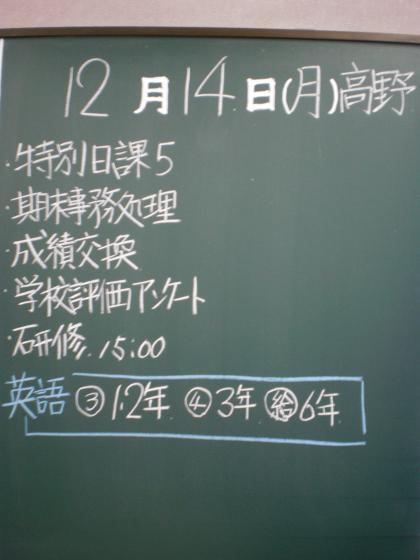 12月14日(月)高野
・特別日課5
・期末事務処理
・成績交換
・学校評価アンケート
・研修 15:00
英語 ③1.2年 ④3年 ㊗6年